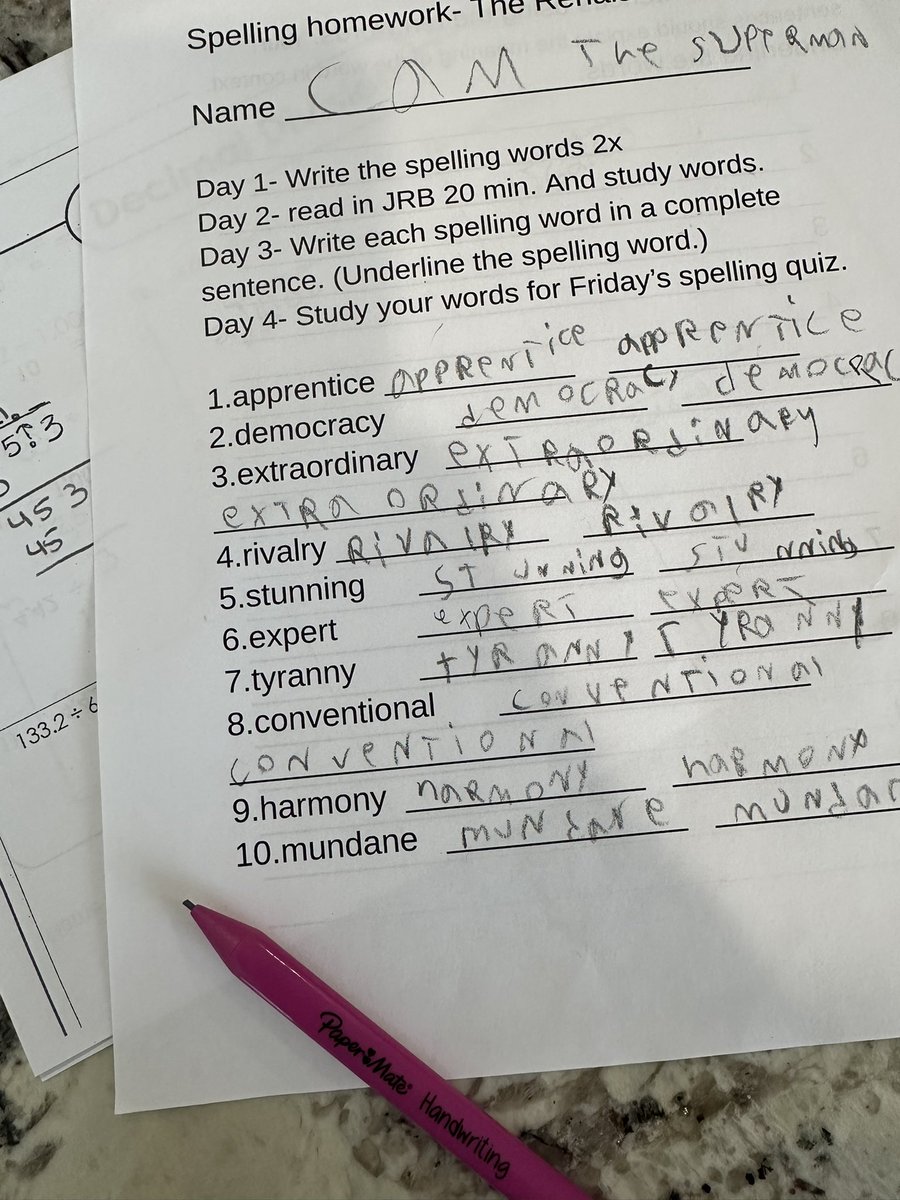 Spelling homework- The
Name CAM The SUPERMAN
Day 1- Write the spelling words 2x
Day 2- read in JRB 20 min. And study words.
Day 3- Write each spelling word in a complete
sentence. (Underline the spelling word.)
Day 4- Study your words for Friday's spelling quiz.
1.apprentice appRENTice appRENTiCE
2.democracy demOCRaCy demOCRaC
3.extraordinary exTRaORdiNaRy
exTRa ORdiNaRY
4.rivalry RiValRY RiValRY
5.stunning STUNNiNg STUNNiNg
6.expert expeRT expeRT
7.tyranny tYRaNNY TYRaNNY
8.conventional CONVeNTiONal
CONVeNTiONal
9.harmony haRMONY haRMONY
10.mundane MUNdaNe MUNda
5.3
45 3
45
133.2 ÷ 6
Paper Mate Handwriting